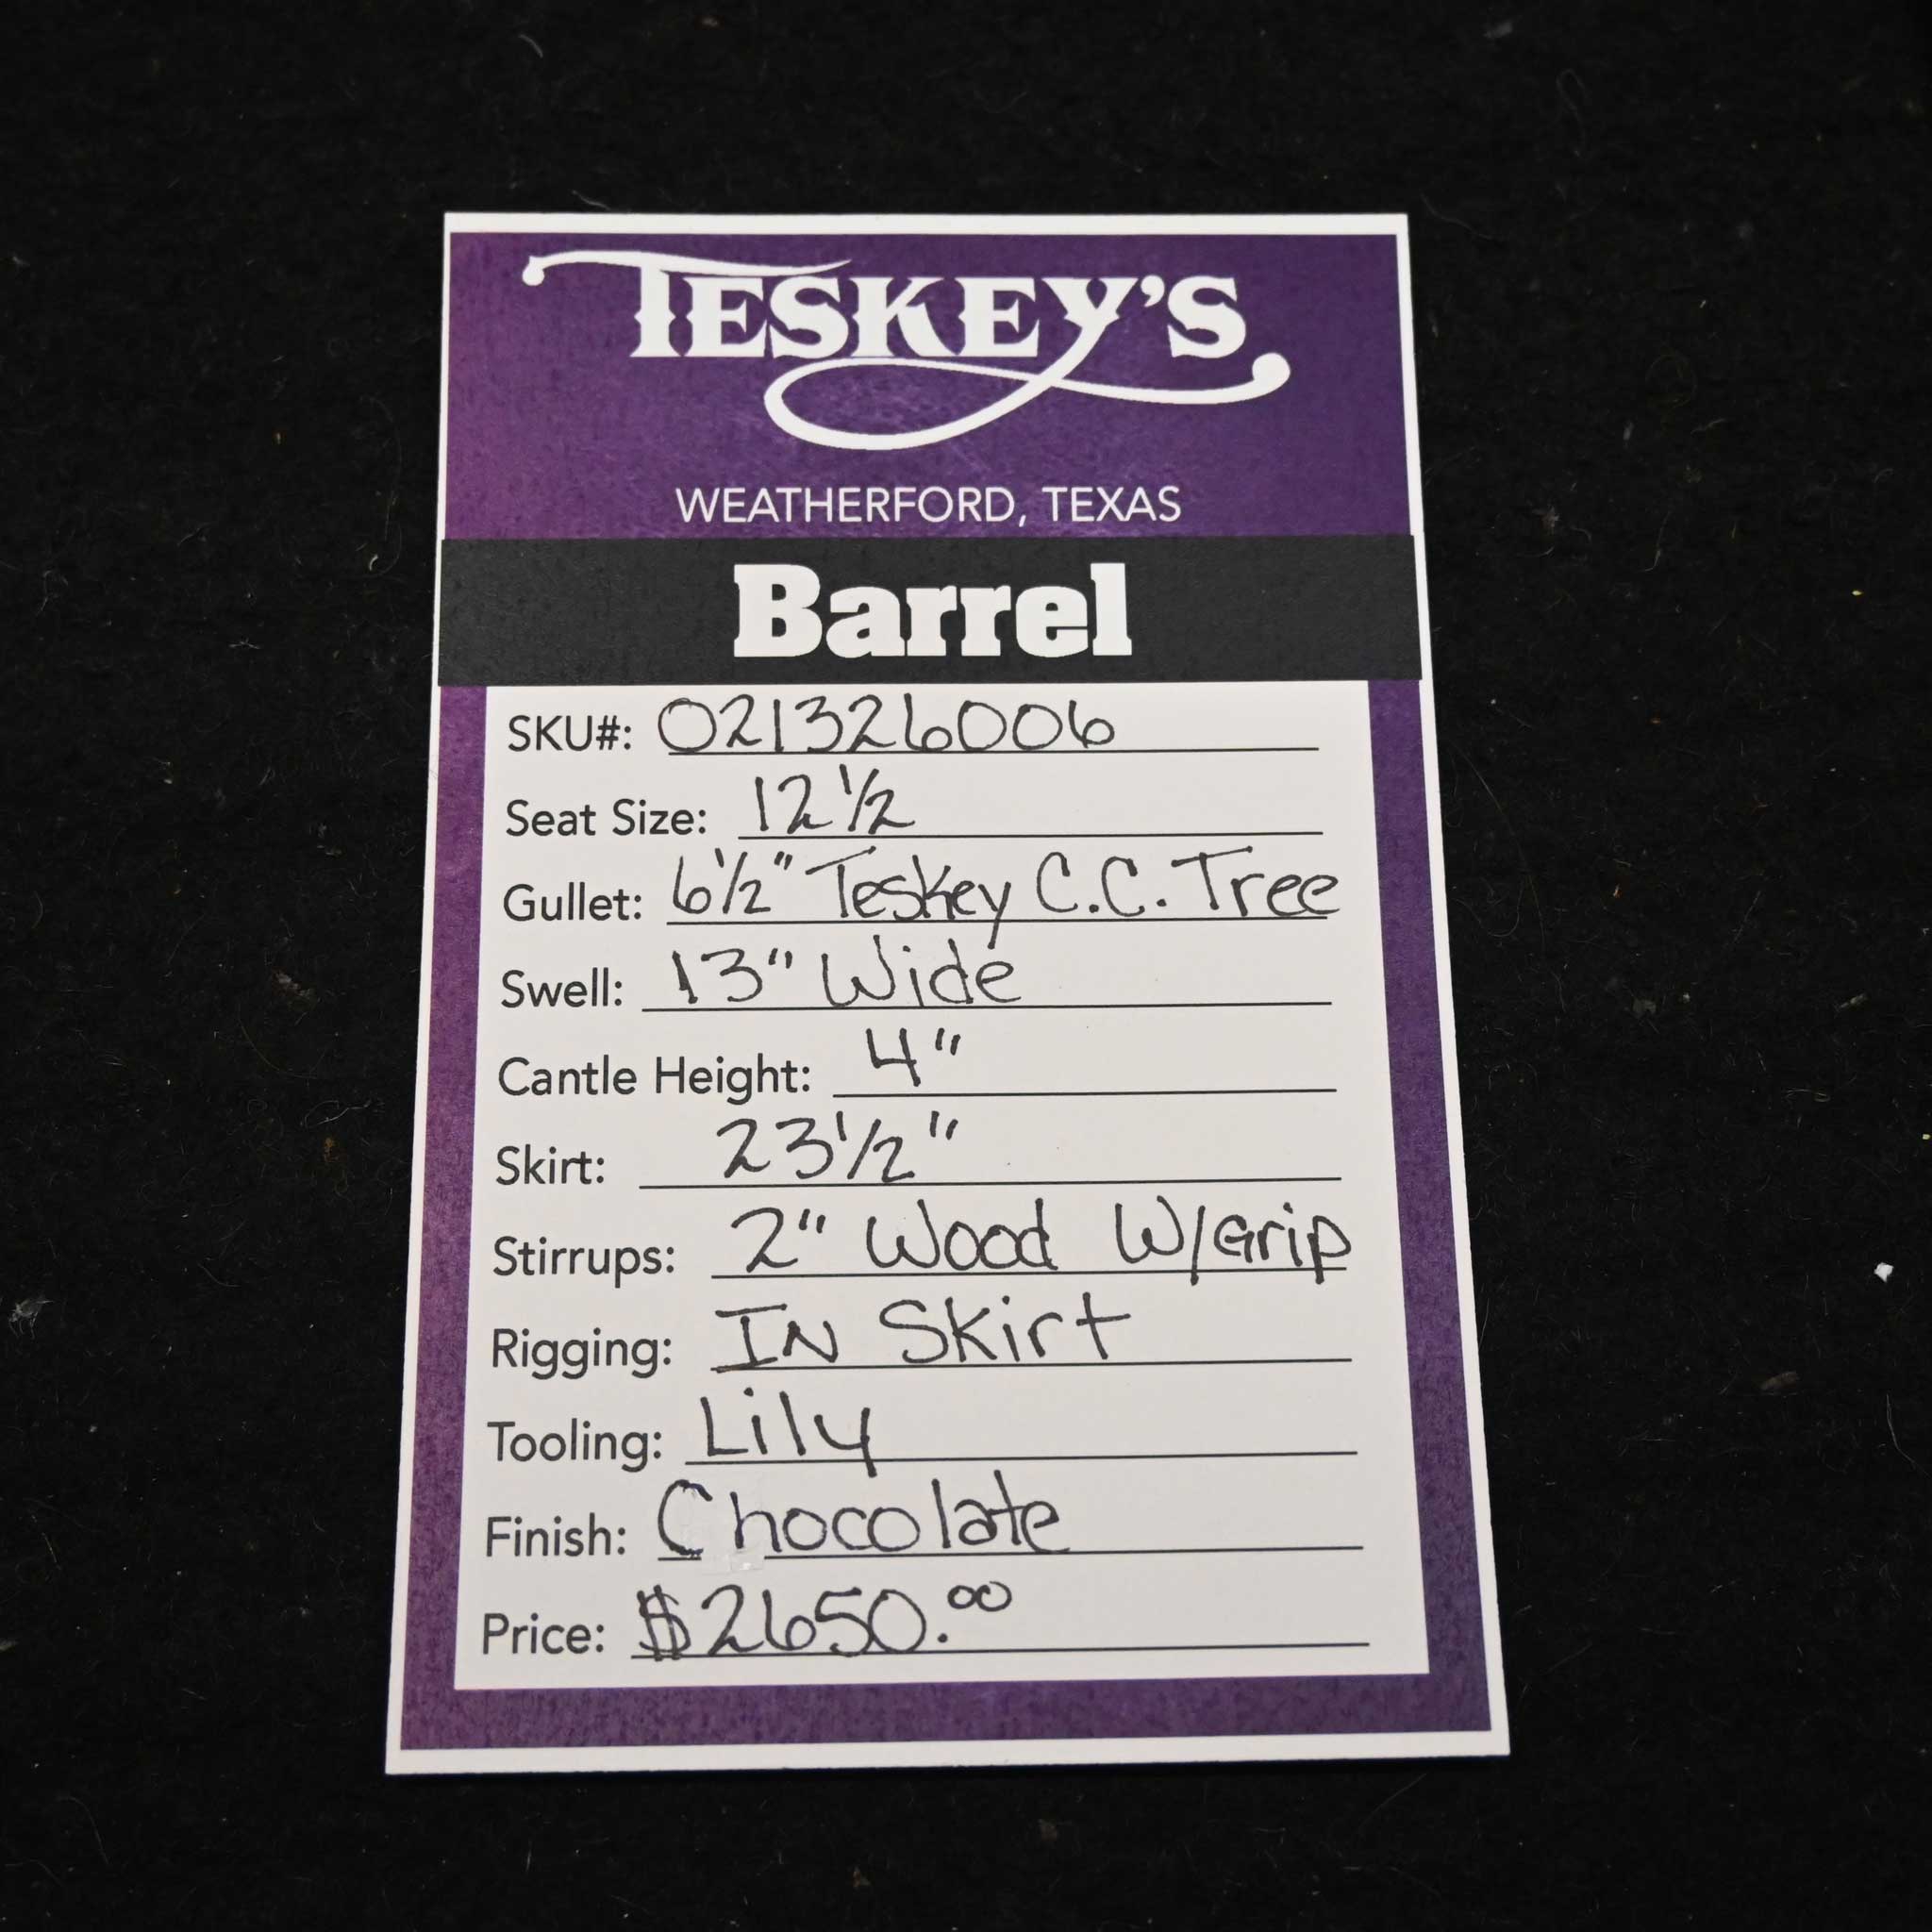 TESKEY'S
WEATHERFORD, TEXAS
Barrel
SKU#: 021326006
Seat Size: 12 1/2
Gullet: 6 1/2" Teskey C.C. Tree
Swell: 13" Wide
Cantle Height: 4"
Skirt: 23 1/2"
Stirrups: 2" Wood W/Grip
Rigging: IN Skirt
Tooling: Lily
Finish: Chocolate
Price: $2650.00